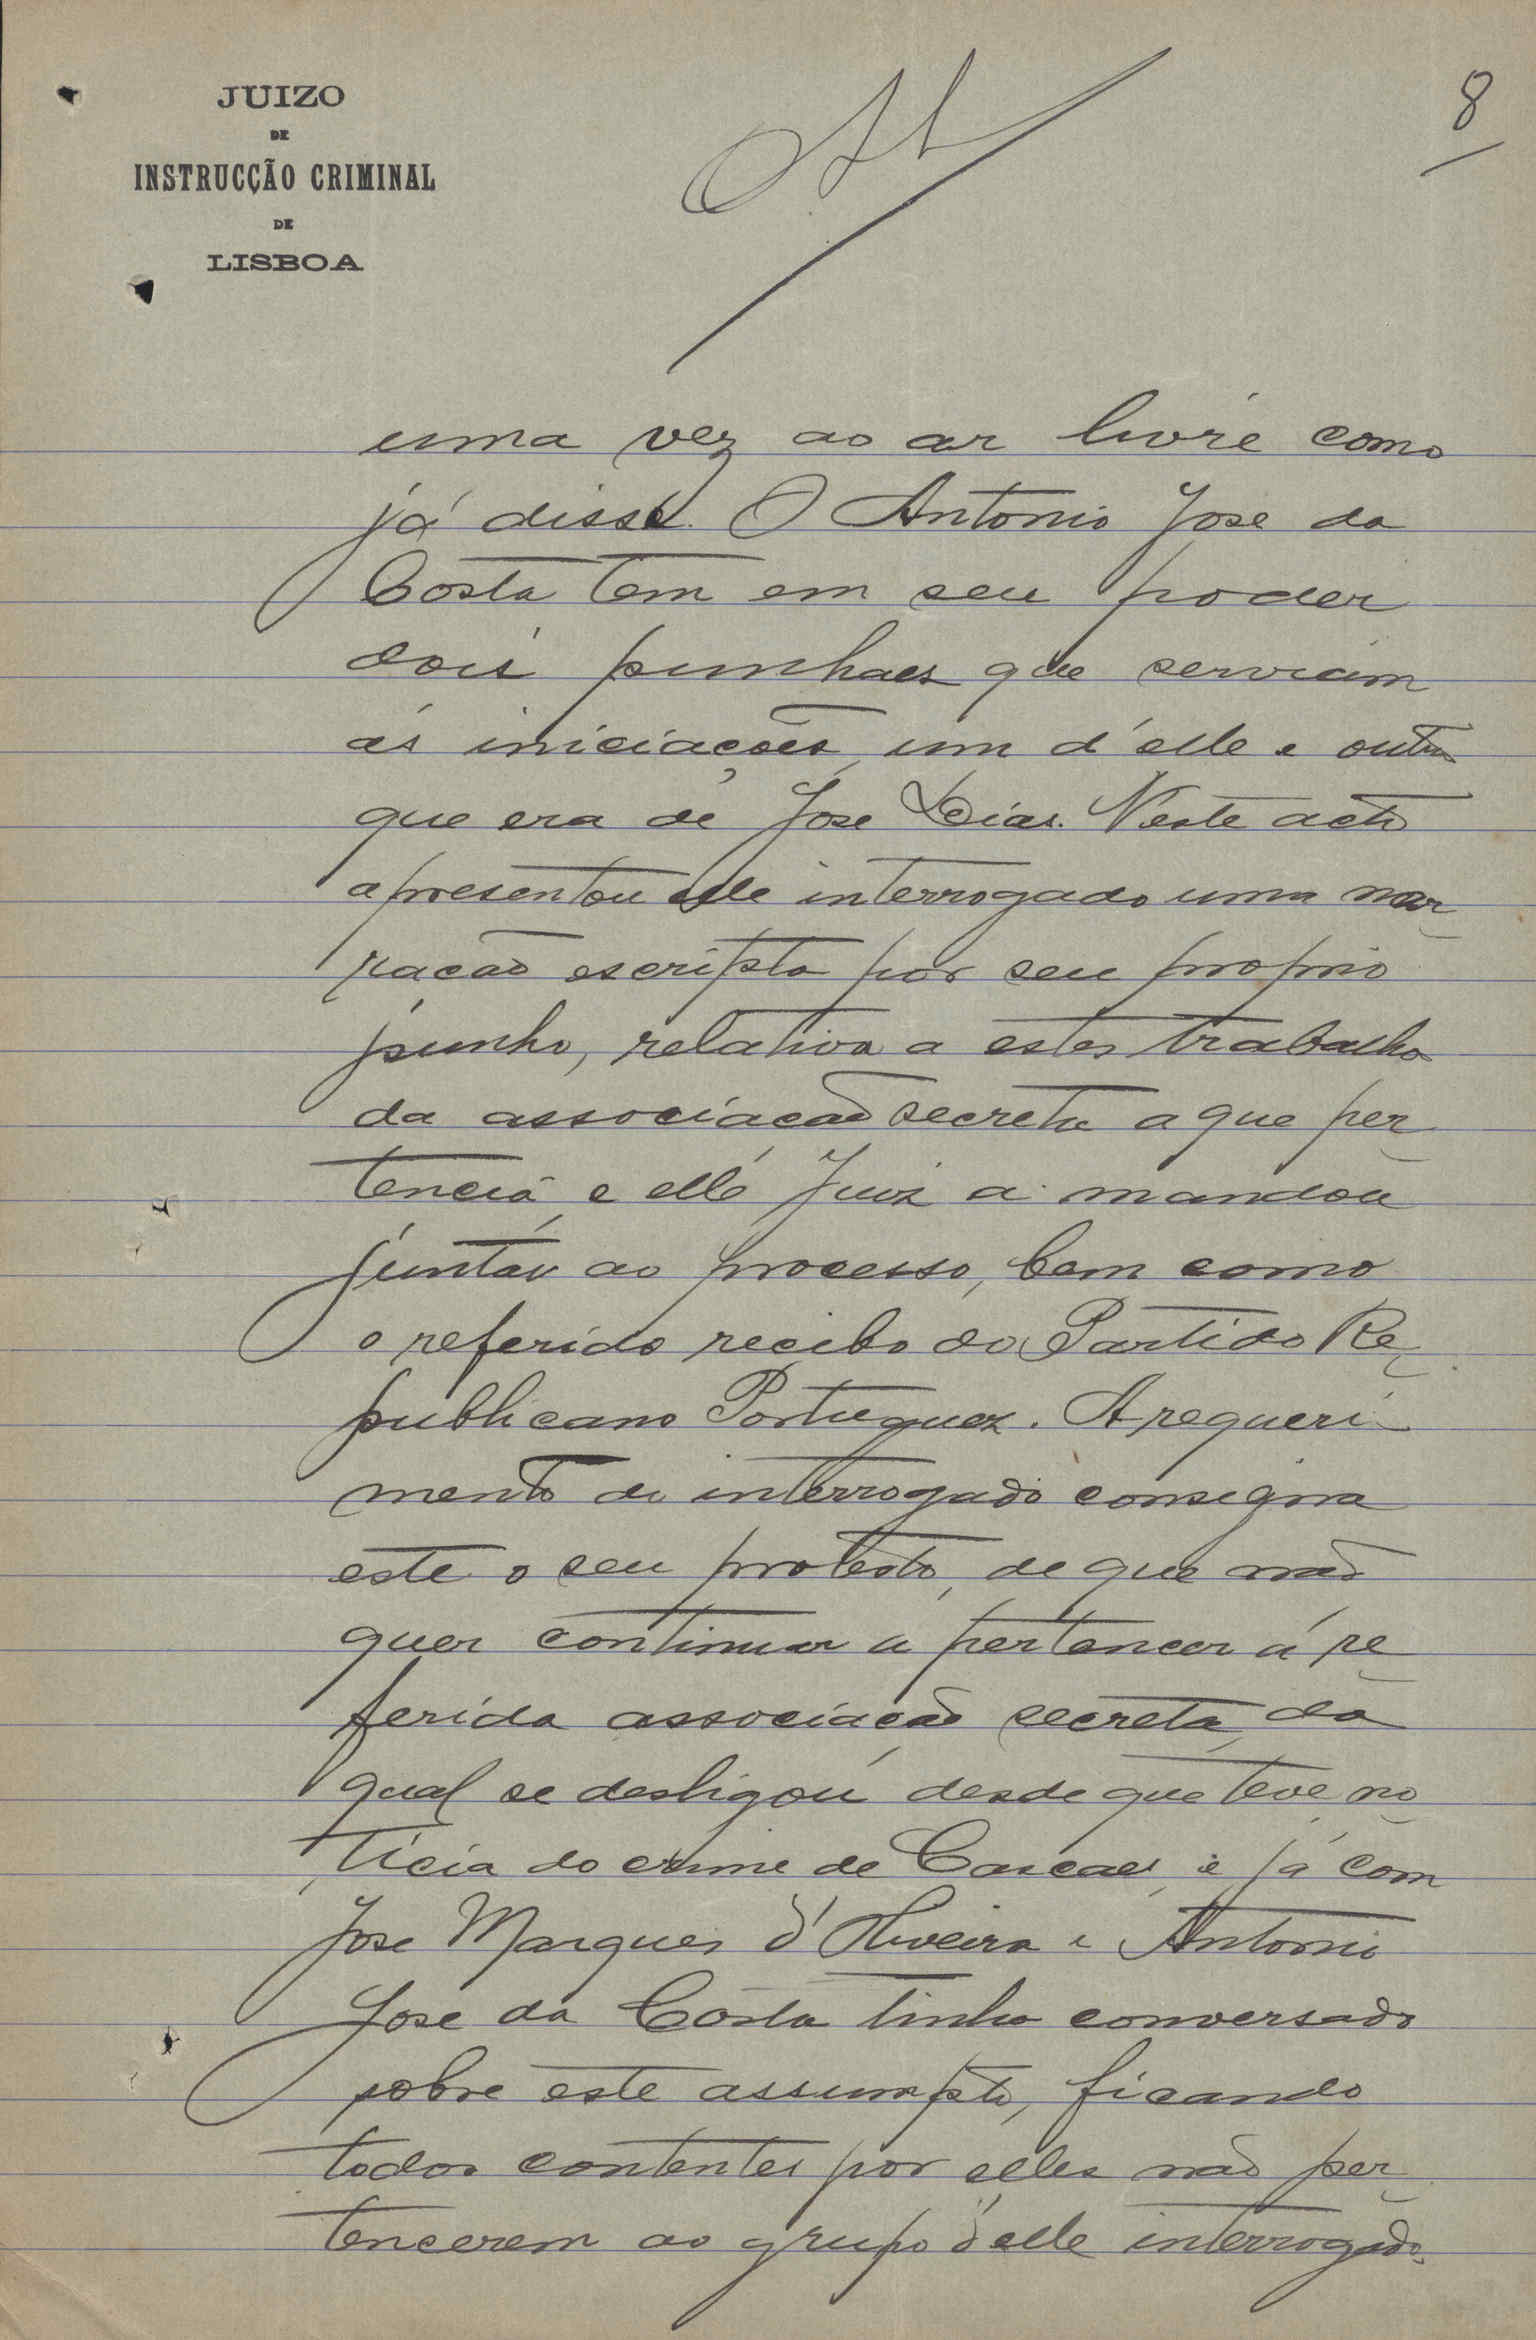 JUIZO
DE
INSTRUCÇÃO CRIMINAL
DE
LISBOA
8
uma vez ao ar livre como
já disse. O Antonio José da
Costa tem em seu poder
dois punhaes que serviam
ás iniciações, um d'elle e outro
que era de José Dias. Neste acto
apresentou elle interrogado uma nar-
ração escripta por seu proprio
punho, relativa a estes trabalhos
da associação secreta a que per-
tencia, e elle Juiz a mandou
juntar ao processo, bem como
o referido recibo do Partido Re-
publicano Portuguez. A requeri-
mento do interrogado consigna
este o seu protesto, de que não
quer continuar a pertencer á re-
ferida associação secreta, da
qual se desligou desde que teve no-
ticia do crime de Cascaes, e já com
José Marques d'Oliveira e Antonio
José da Costa tinha conversado
sobre este assumpto, ficando
todos contentes por elles não per-
tencerem ao grupo d'elle interrogado